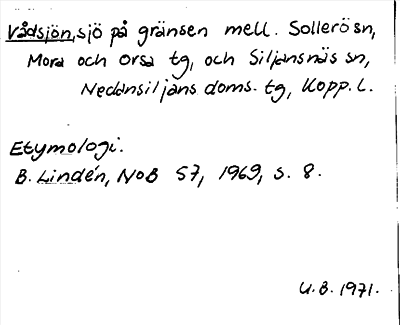 Vådsjön, sjö på gränsen mell. Sollerö sn,
Mora och Orsa tg, och Siljansnäs sn,
Nedansiljans doms. tg, Kopp. l.
Etymologi.
B. Lindén, NoB 57, 1969, s. 8.
U.B. 1971.